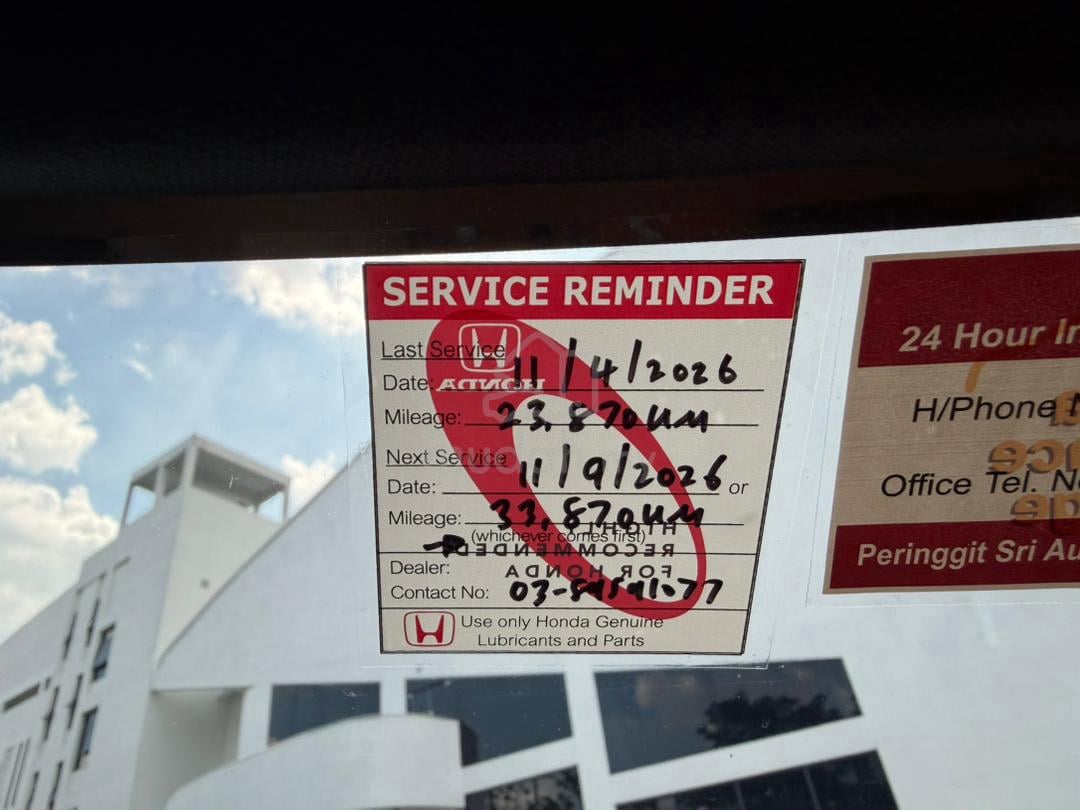 SERVICE REMINDER
Last Service
Date: 11/4/2026
HONDA
Mileage: 23,870KM
Next Service
Date: 11/9/2026 or
Mileage: 33,870KM
(whichever comes first)
HIGHLY
RECOMMENDED
Dealer:
FOR HONDA
Contact No:
Use only Honda Genuine
Lubricants and Parts
24 Hour
H/Phone
Office Tel.
Peringgit Sri